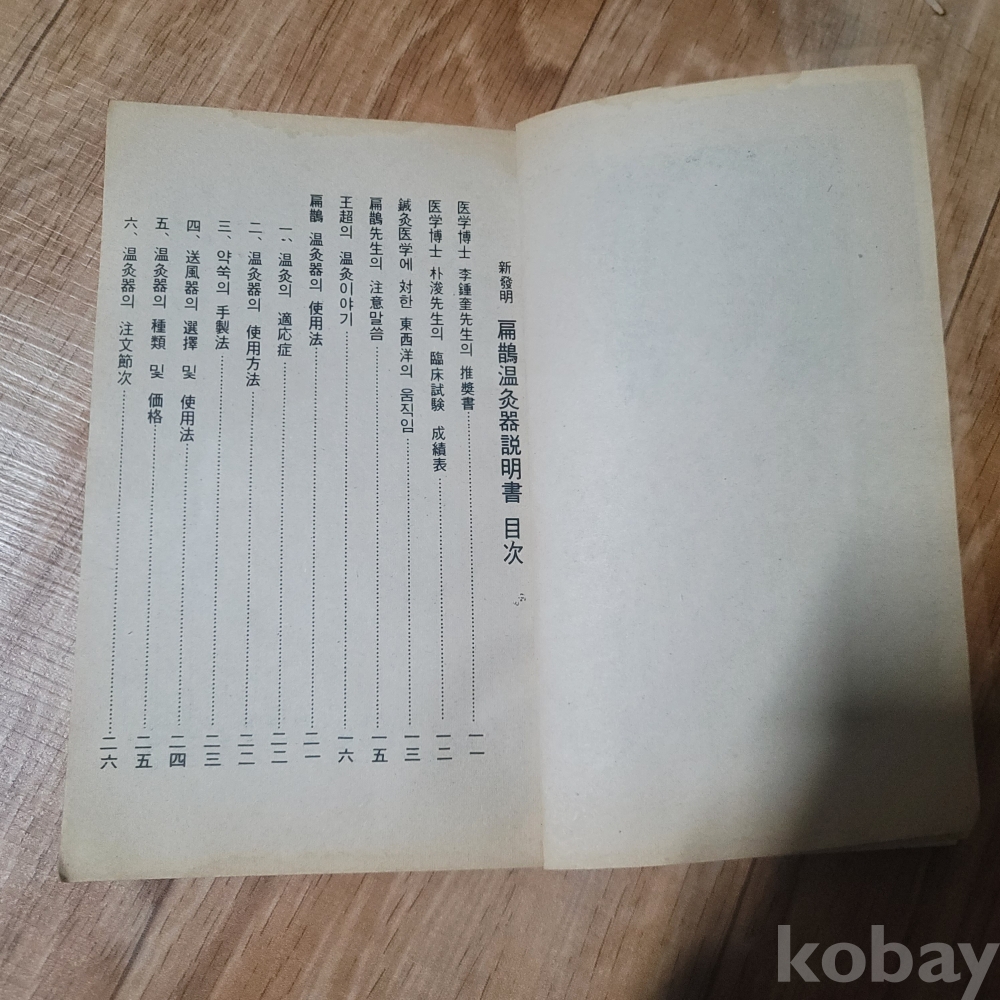 新發明 扁鵲温灸器説明書 目次
医学博士 李鍾奎先生의 推奬書 一一
医学博士 朴浚先生의 臨床試験 成績表 一二
鍼灸医学에 対한 東西洋의 움직임 一三
扁鵲先生의 注意말씀 一五
王超의 温灸이야기 一六
扁鵲 温灸器의 使用法 二一
一、温灸의 適応症 二二
二、温灸器의 使用方法 二二
三、약쑥의 手製法 二三
四、送風器의 選擇 및 使用法 二四
五、温灸器의 種類 및 価格 二五
六、温灸器의 注文節次 二六
kobay